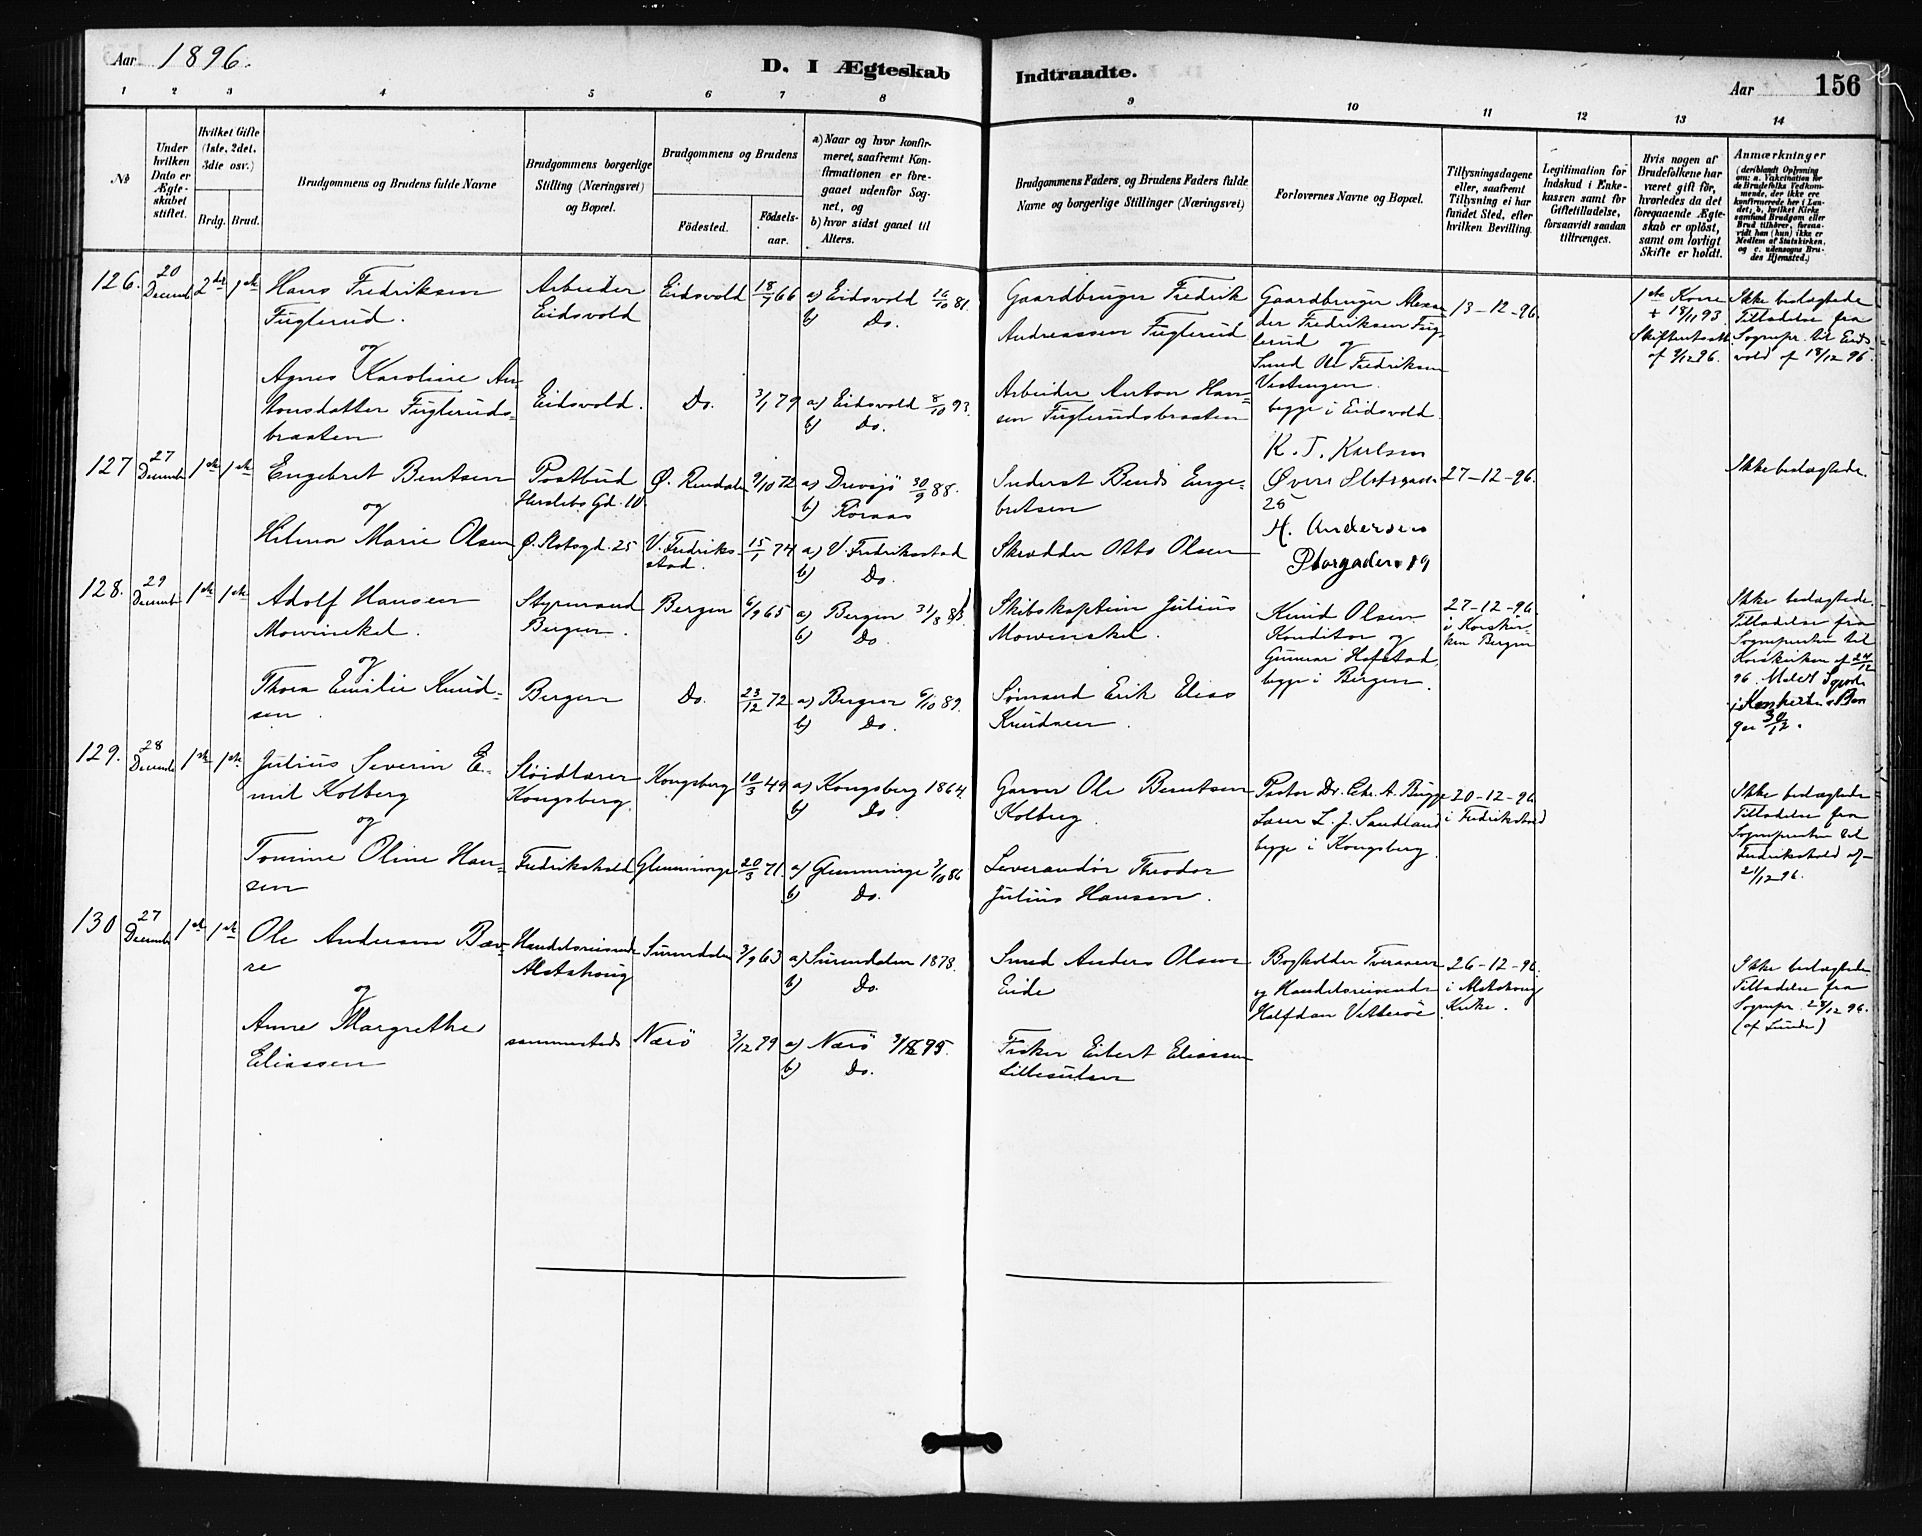 Aar 1896.
D. I Ægteskab
Indtraadte.
Aar
156
1 2 3 4 5 6 7 8
9 10 11 12 13 14
No
Under hvilken Dato er Ægteskabet stiftet.
Hvilket Gifte (1ste, 2det, 3die osv.)
Brdg. Brud.
Brudgommens og Brudens fulde Navne
Brudgommens borgerlige Stilling (Næringsvei) og Bopæl.
Brudgommens og Brudens
Fødested.
Fødsels-aar.
a) Naar og hvor konfirmeret, saafremt Konfirmationen er foregaaet udenfor Sognet, og
b) hvor sidst gaaet til Alters.
Brudgommens Faders, og Brudens Faders fulde Navne og borgerlige Stillinger (Næringsvei)
Forlovernes Navne og Bopæl.
Tillysningsdagene eller, saafremt Tillysning ei har fundet Sted, efter hvilken Bevilling.
Legitimation for Indskud i Enkekassen samt for Giftetilladelse, forsaavidt saadan tiltrænges.
Hvis nogen af Brudefolkene har været gift før, hvorledes da det foregaaende Ægteskab er opløst, samt om lovligt Skifte er holdt.
Anmærkninger (deriblandt Oplysning om: a. Vakcination for de Brudefolks Vedkommende, der ikke ere konfirmerede her i Landet; b. hvilket Kirkesamfund Brudgom eller Brud tilhører, forsaavidt han (hun) ikke er Medlem af Statskirken, og c. udensogns Brudes Hjemsted.)
126. 20 Decemb 2det 1ste
Hans Fredriksen
Fuglerud.
og
Arbeider
Eidsvold
Eidsvold 18/7 66
a) Eidsvold 16/10 81.
b) Do.
Gaardbruger Fredrik
Andreassen Fuglerud
Gaardbruger Alexan
der Fredriksen Fug-
lerud og
Smed Ole Fredriksen
Vestengen.
begge i Eidsvold.
13-12-96.
1ste Kone
+ 18/11 93
Skifteattest
af 9/12 96.
Ikke beslægtede
Tilladelse fra
Sognepr. til Eids
vold af 18/12 96.
Agnes Karoline An-
tonsdatter Fugleruds-
braaten
Eidsvold. Do. 3/1 79
a) Eidsvold 8/10 93.
b) Do.
Arbeider Anton Han-
sen Fuglerudsbraaten
127 27 Decemb 1ste 1ste
Engebret Bentsen
og
Postbud
Herslebs Gd. 10.
Ø. Rendalen 9/10 72
a) Drevsjø 30/9 88.
b) Røraas
Inderst Bends Enge-
bretsen
K. T. Karlsen
Øvre Slotsgade
25
H. Andersen
Storgaden 19
27-12-96.
Ikke beslægtede.
Hilma Marie Olsen
Ø. Slotsgd. 25
V. Fredriks-
stad.
15/1 74
a) V. Fredriksstad
b) Do.
Skrædder Otto Olsen
128. 29 Decemb 1ste 1ste
Adolf Hansen
Mowinckel.
og
Styrmand
Bergen.
Bergen 6/9 65
a) Bergen 31/8 81
b) Do.
Skibskaptein Julius
Mowinckel.
Knud Olsen
Konditor og
Gunnar Hofstad,
begge i Bergen.
27-12-96.
i Korskir-
ken Bergen
Ikke beslægtede.
Tilladelse fra
Sognepresten til
Korskirken af 24/12
96. Meldt Sgpr.
i Korskirken i Ber
gen 30/12.
Thora Emilie Knud-
sen.
Bergen Do. 23/12 72
a) Bergen 6/10 89.
b) Do.
Sømand Erik Elias
Knudsen.
129. 28 Decemb 1ste 1ste
Julius Severin E-
mil Kolberg
og
Sløidlærer
Kongsberg.
Kongsberg 10/3 49
a) Kongsberg 1864.
b) Do.
Garver Ole Berntsen
Kolberg.
Pastor Dr. Chr. A. Bugge
Lærer L. J. Sandland
begge i Kongsberg.
20-12-96.
i Fredrikshald
Ikke beslægtede
Tilladelse fra
Sognepresten til
Fredrikshald af
21/12 96.
Tomine Oline Han-
sen
Fredrikshald Glemminge 20/3 71
a) Glemminge 3/10 86
b) Do.
Leverandør Theodor
Julius Hansen.
130 27 Decemb 1ste 1ste
Ole Andersen Bæv-
re
og
Handelsreisende
Alstahoug
Surendalen 3/9 63
a) Surendalen 1878.
b) Do.
Smed Anders Olsen
Eide
Bogholder Tveraaen
og Handelsreisende
Halfdan Vetterøe
26-12-96.
i Alstahoug
Kirke.
Ikke beslægtede
Tilladelse fra
Sognepr. 28/12 96.
(af Lunde)
Anne Margrethe
Eliassen
sammesteds Nærø 3/12 79
a) Nærø 95.
b) Do.
Fisker Eibert Eliassen